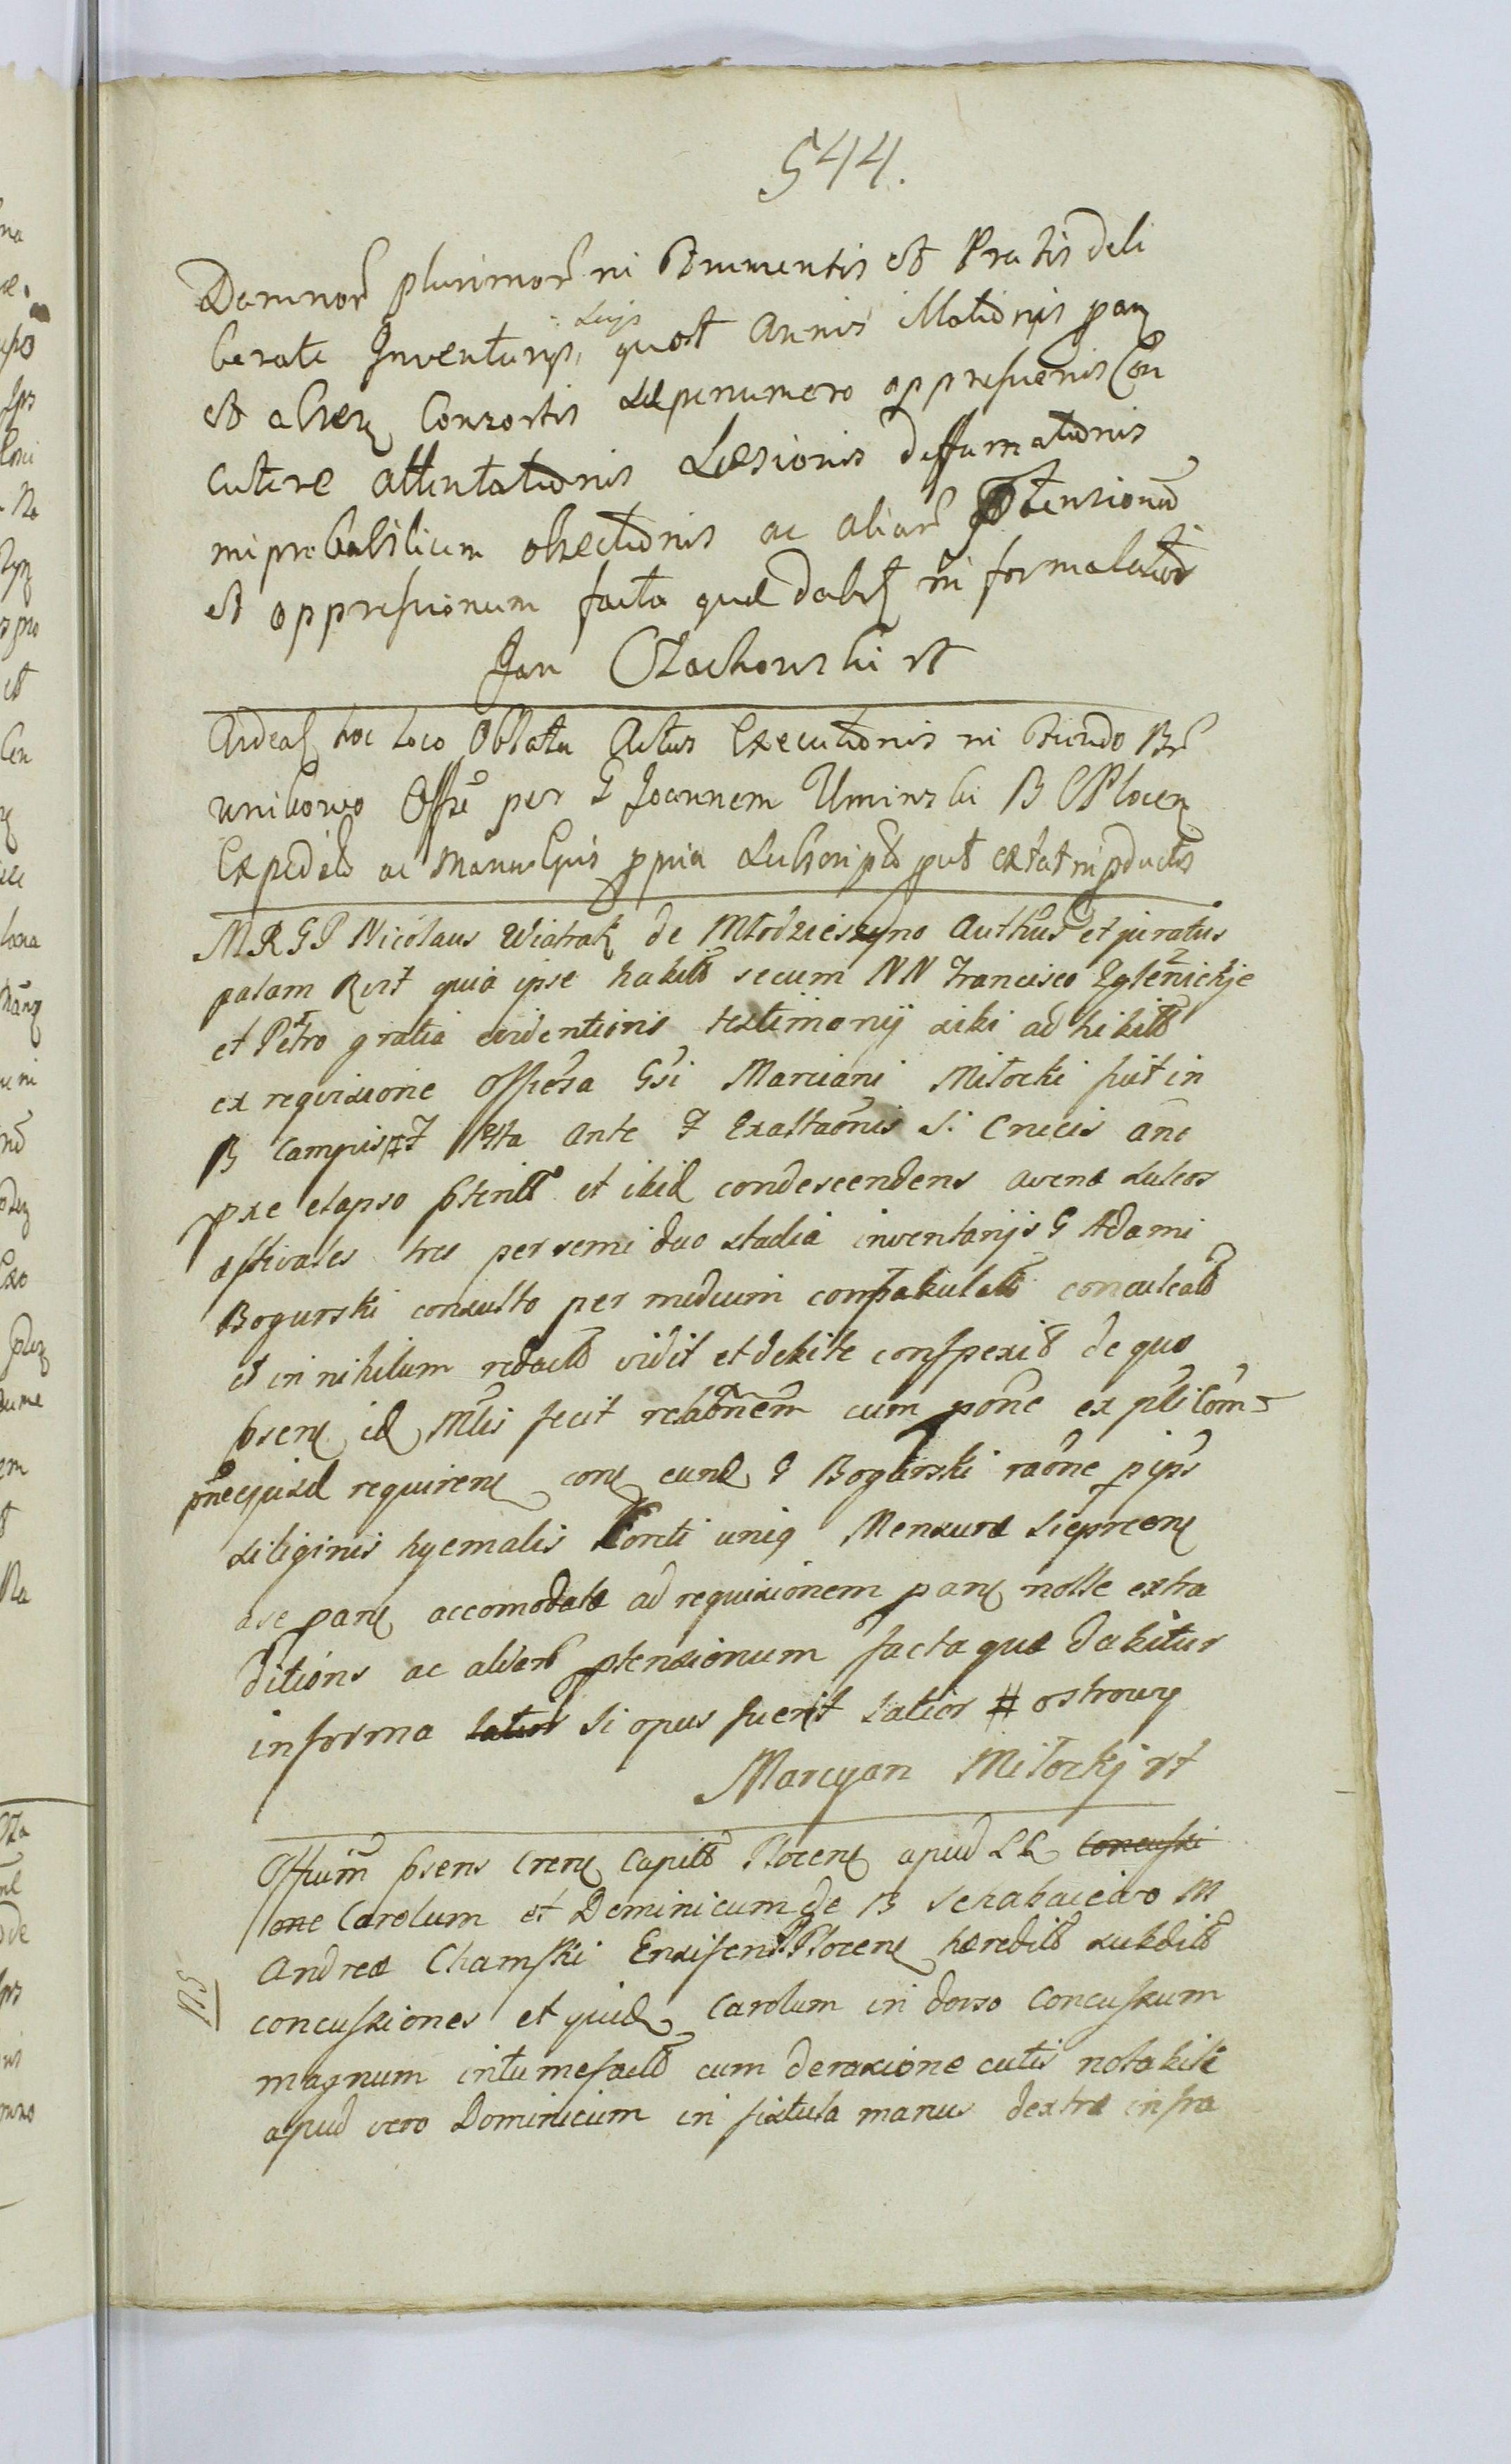 544.
Damnor plurimor in Frumentis et Pratis deli
berate Inventarijs, suijs quot Annis illationis pan
et alterq Consortis saepenumero oppressienis Con
cutere attentationis Laesionis diffamationis
improbabilium obiectionis ac aliar ptensionũ
et oppressionum facta quae dabit in forma latior
Jan Czachowski rt
Ardeat hoc Loco Oblata Actus Executionis in Fundo Br
uniborvo Offr per G Joannem Uminski B C Plocen
Expedit ac Manu Ejus ppria Subscript put extat in pductis
MRGP Nicolaus Wiatrak de Młodzieszyno Authus et juratus
palam Rvit quia ipse habitis secum NN Francisco Zglenickje
et Petro gratia evidentioris testimonij sibi ad hibitis
ex requisicione Offiosa Gsi Marciani Miłocki fuit in
B Campis # F Ista ante F Exaltaonis S: Crucis ane
pxe elapso pterit et ibid condescendens avenae sulcos
aestivales tres per semi duo stadia inventarijs G Adami
Bogurski consulto per medium conpabulat conculcat
et in nihilum redact vidit et debite conspexit de quo
psens id Mtis fecit relaonem cum pone ex pti com
pne ejusd requirens cons eund G Bogurski raone pips
siliginis hyemalis Korcti uniq Mensurae Sieprcens
ase pans accomodatae ad requisionem pans nolle extra
ditions ac aliar ptensionum facta quae dabitur
in forma latior si opus fuerit latior # ostrowy
Marcyan Miłockj rt
Offium psens Crens Capit Plocens apud LL concussi
one Carolum et Dominicum de B Schabaiewo M
Andreae Chamski Ensifen Plocens haeredit subdit
NS
concussiones et quid Carolum in dorso concussum
magnum intumefact cum derasione cutis notabili
apud vero Dominicum in fistula manus dextrae infra